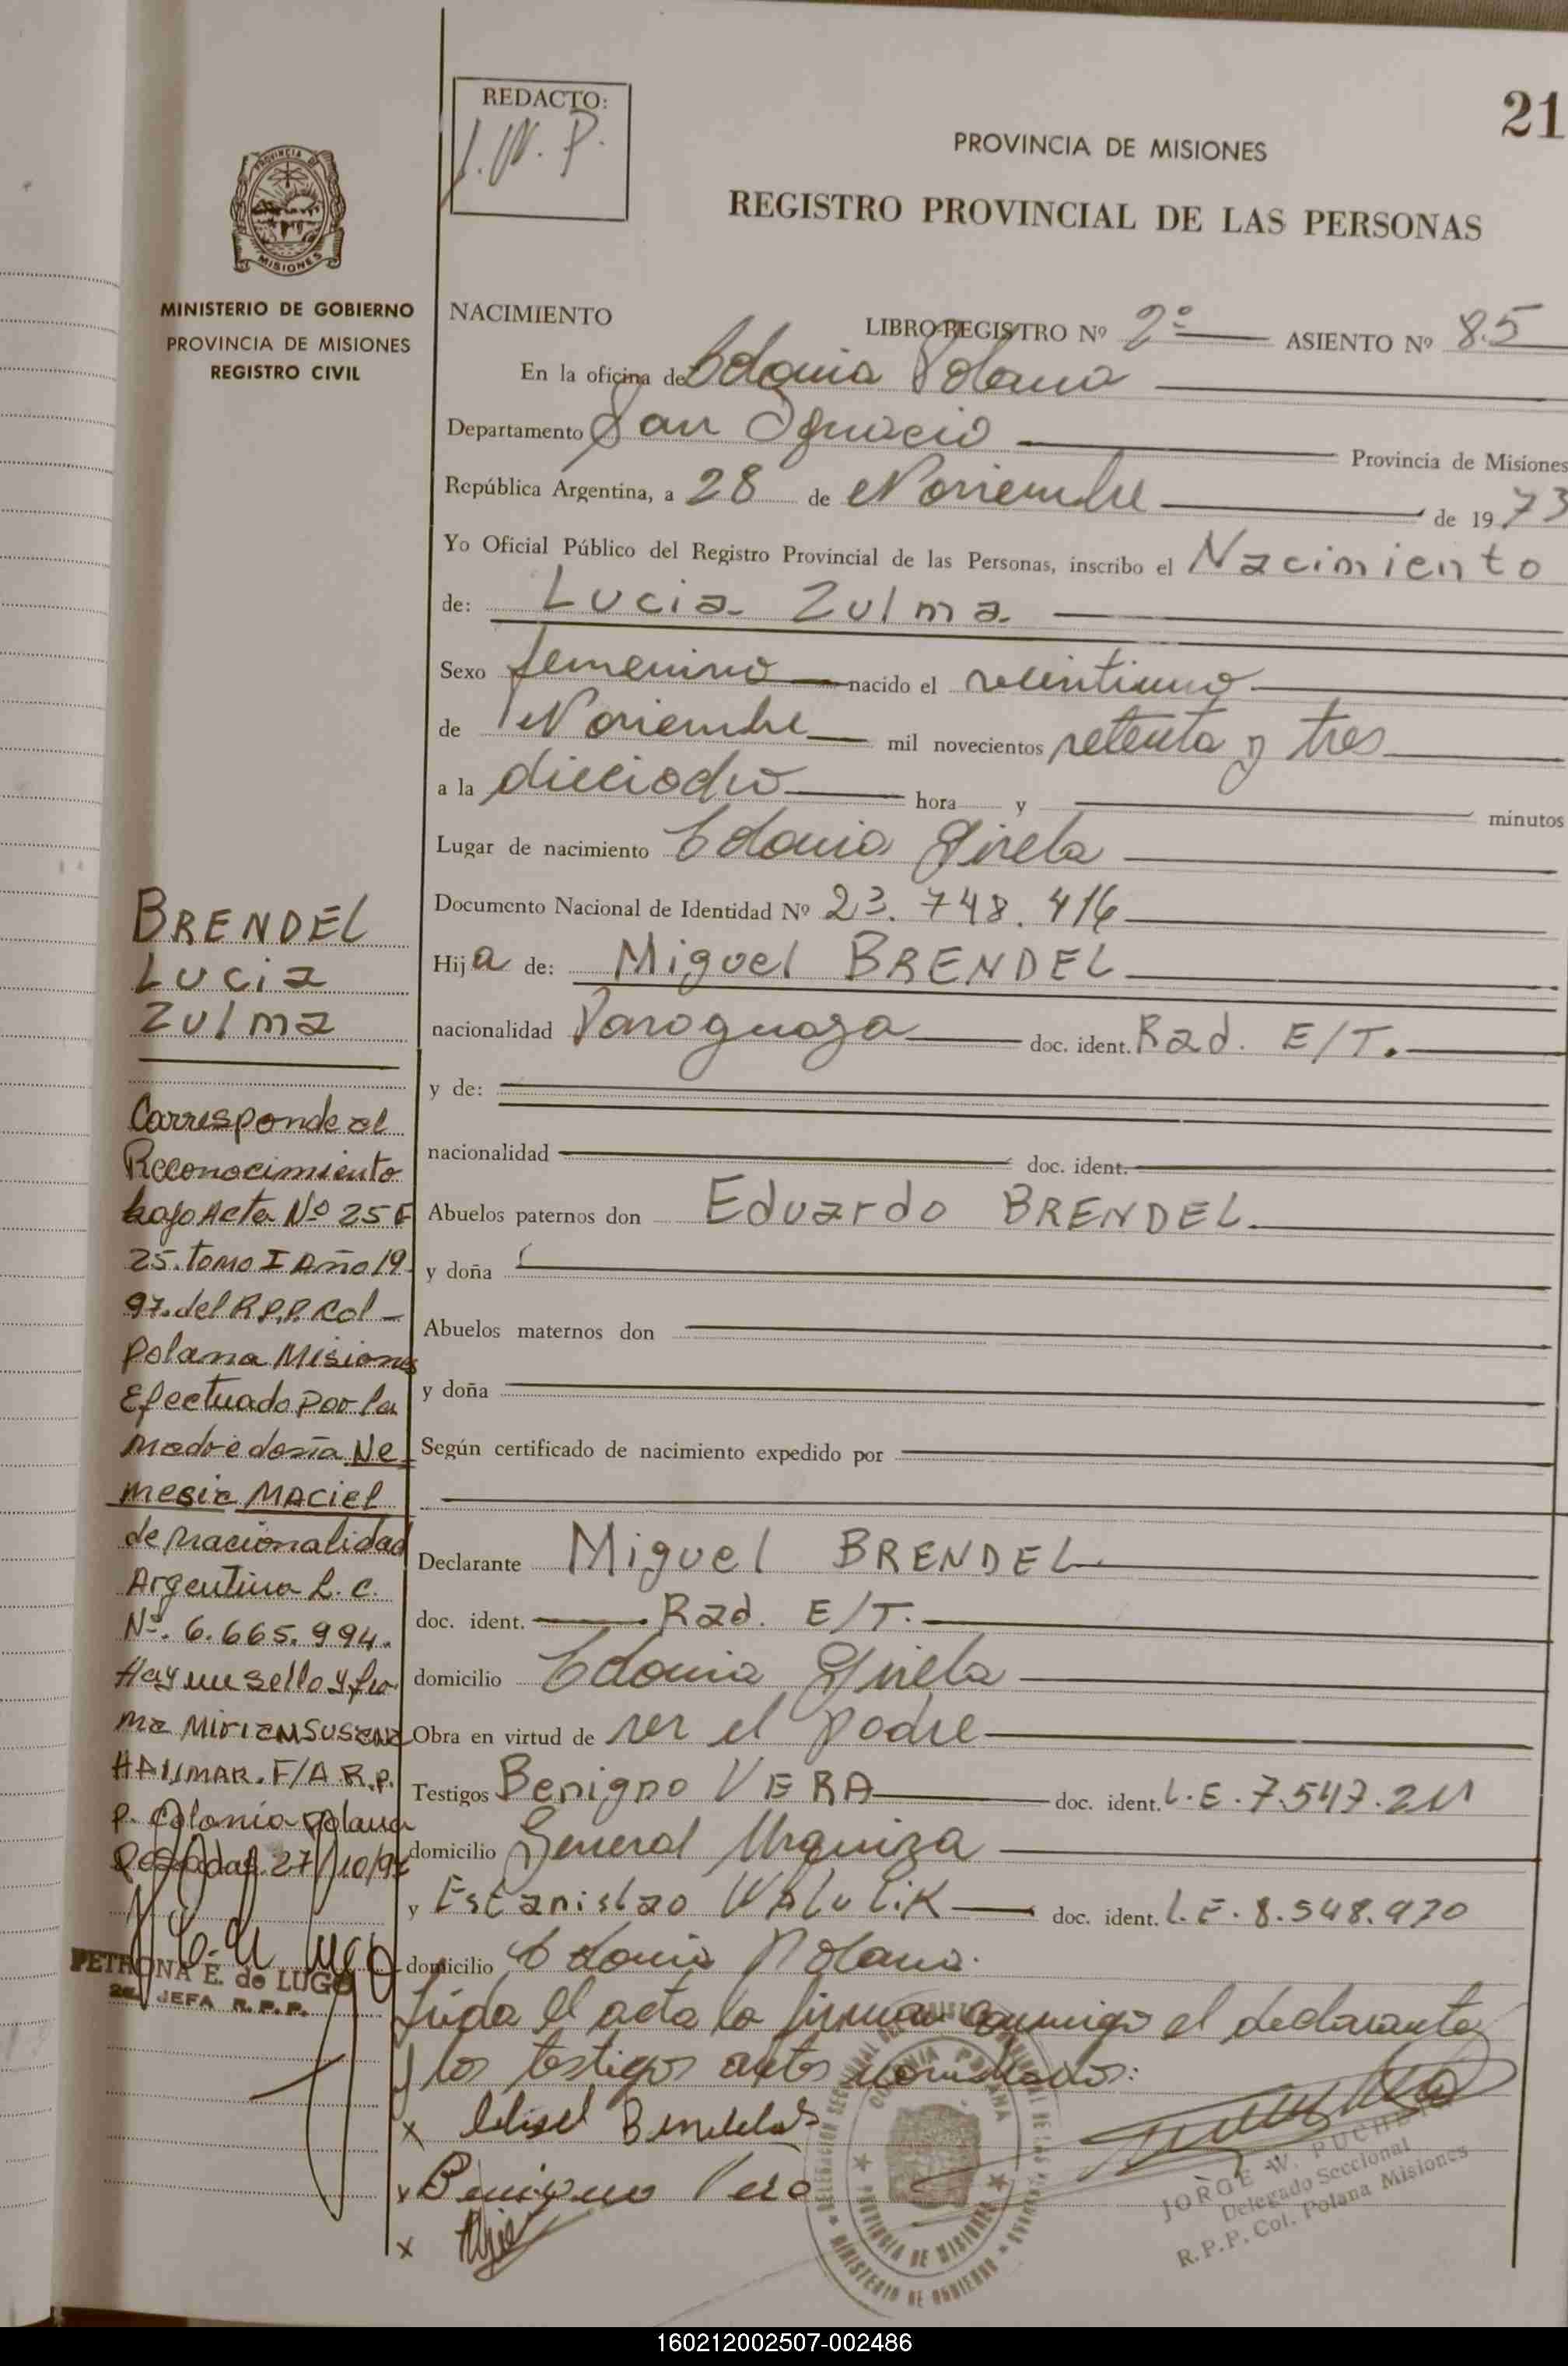 21
REDACTO:
J.W.P.
PROVINCIA DE MISIONES
REGISTRO PROVINCIAL DE LAS PERSONAS
PROVINCIA DE
MISIONES
MINISTERIO DE GOBIERNO
PROVINCIA DE MISIONES
REGISTRO CIVIL
NACIMIENTO
LIBRO REGISTRO Nº 2º ASIENTO Nº 85
En la oficina de Colonia Polana
Departamento San Ignacio Provincia de Misiones
República Argentina, a 28 de Noviembre de 1973
Yo Oficial Público del Registro Provincial de las Personas, inscribo el Nacimiento
de: Lucia Zulma
Sexo femenino nacido el veintiuno
de Noviembre mil novecientos setenta y tres
a la dieciocho hora y minutos
Lugar de nacimiento Colonia Gisela
Documento Nacional de Identidad Nº 23.748.416
Hija de: Miguel BRENDEL
nacionalidad Paraguaya doc. ident. Rad. E/T.
y de:
nacionalidad doc. ident.
Abuelos paternos don Eduardo BRENDEL
y doña
Abuelos maternos don
y doña
Según certificado de nacimiento expedido por
Declarante Miguel BRENDEL
doc. ident. Rad. E/T.
domicilio Colonia Gisela
Obra en virtud de ser el padre
Testigos Benigno VERA doc. ident. L.E. 7.547.211
domicilio General Urquiza
y Estanislao WALULIK doc. ident. L.E. 8.548.970
domicilio Colonia Polana.
Leída el acta la firman conmigo el declarante
y los testigos antes nombrados:
x Brendel
x Benigno Vera
x
BRENDEL
Lucia
Zulma
Corresponde al
Reconocimiento
bajo Acta Nº 25 F
25. Tomo I Año 19
97. del R.P.P. Col-
Polana Misiones
Efectuado por la
Madre doña Ne
mesia MACIEL
de nacionalidad
Argentina L.C.
Nº. 6.665.994.
Hay un sello y fir
ma MIRIAM SUSANA
F/A R.P.
P. Colonia Polana
Posadas 27/10/97
PETRONA E. de LUGO
JEFA R.P.P.
COLONIA POLANA
PROVINCIA DE MISIONES
MINISTERIO DE GOBIERNO
JORGE W. PUCHETA
Delegado Seccional
R.P.P. Col. Polana Misiones
160212002507-002486